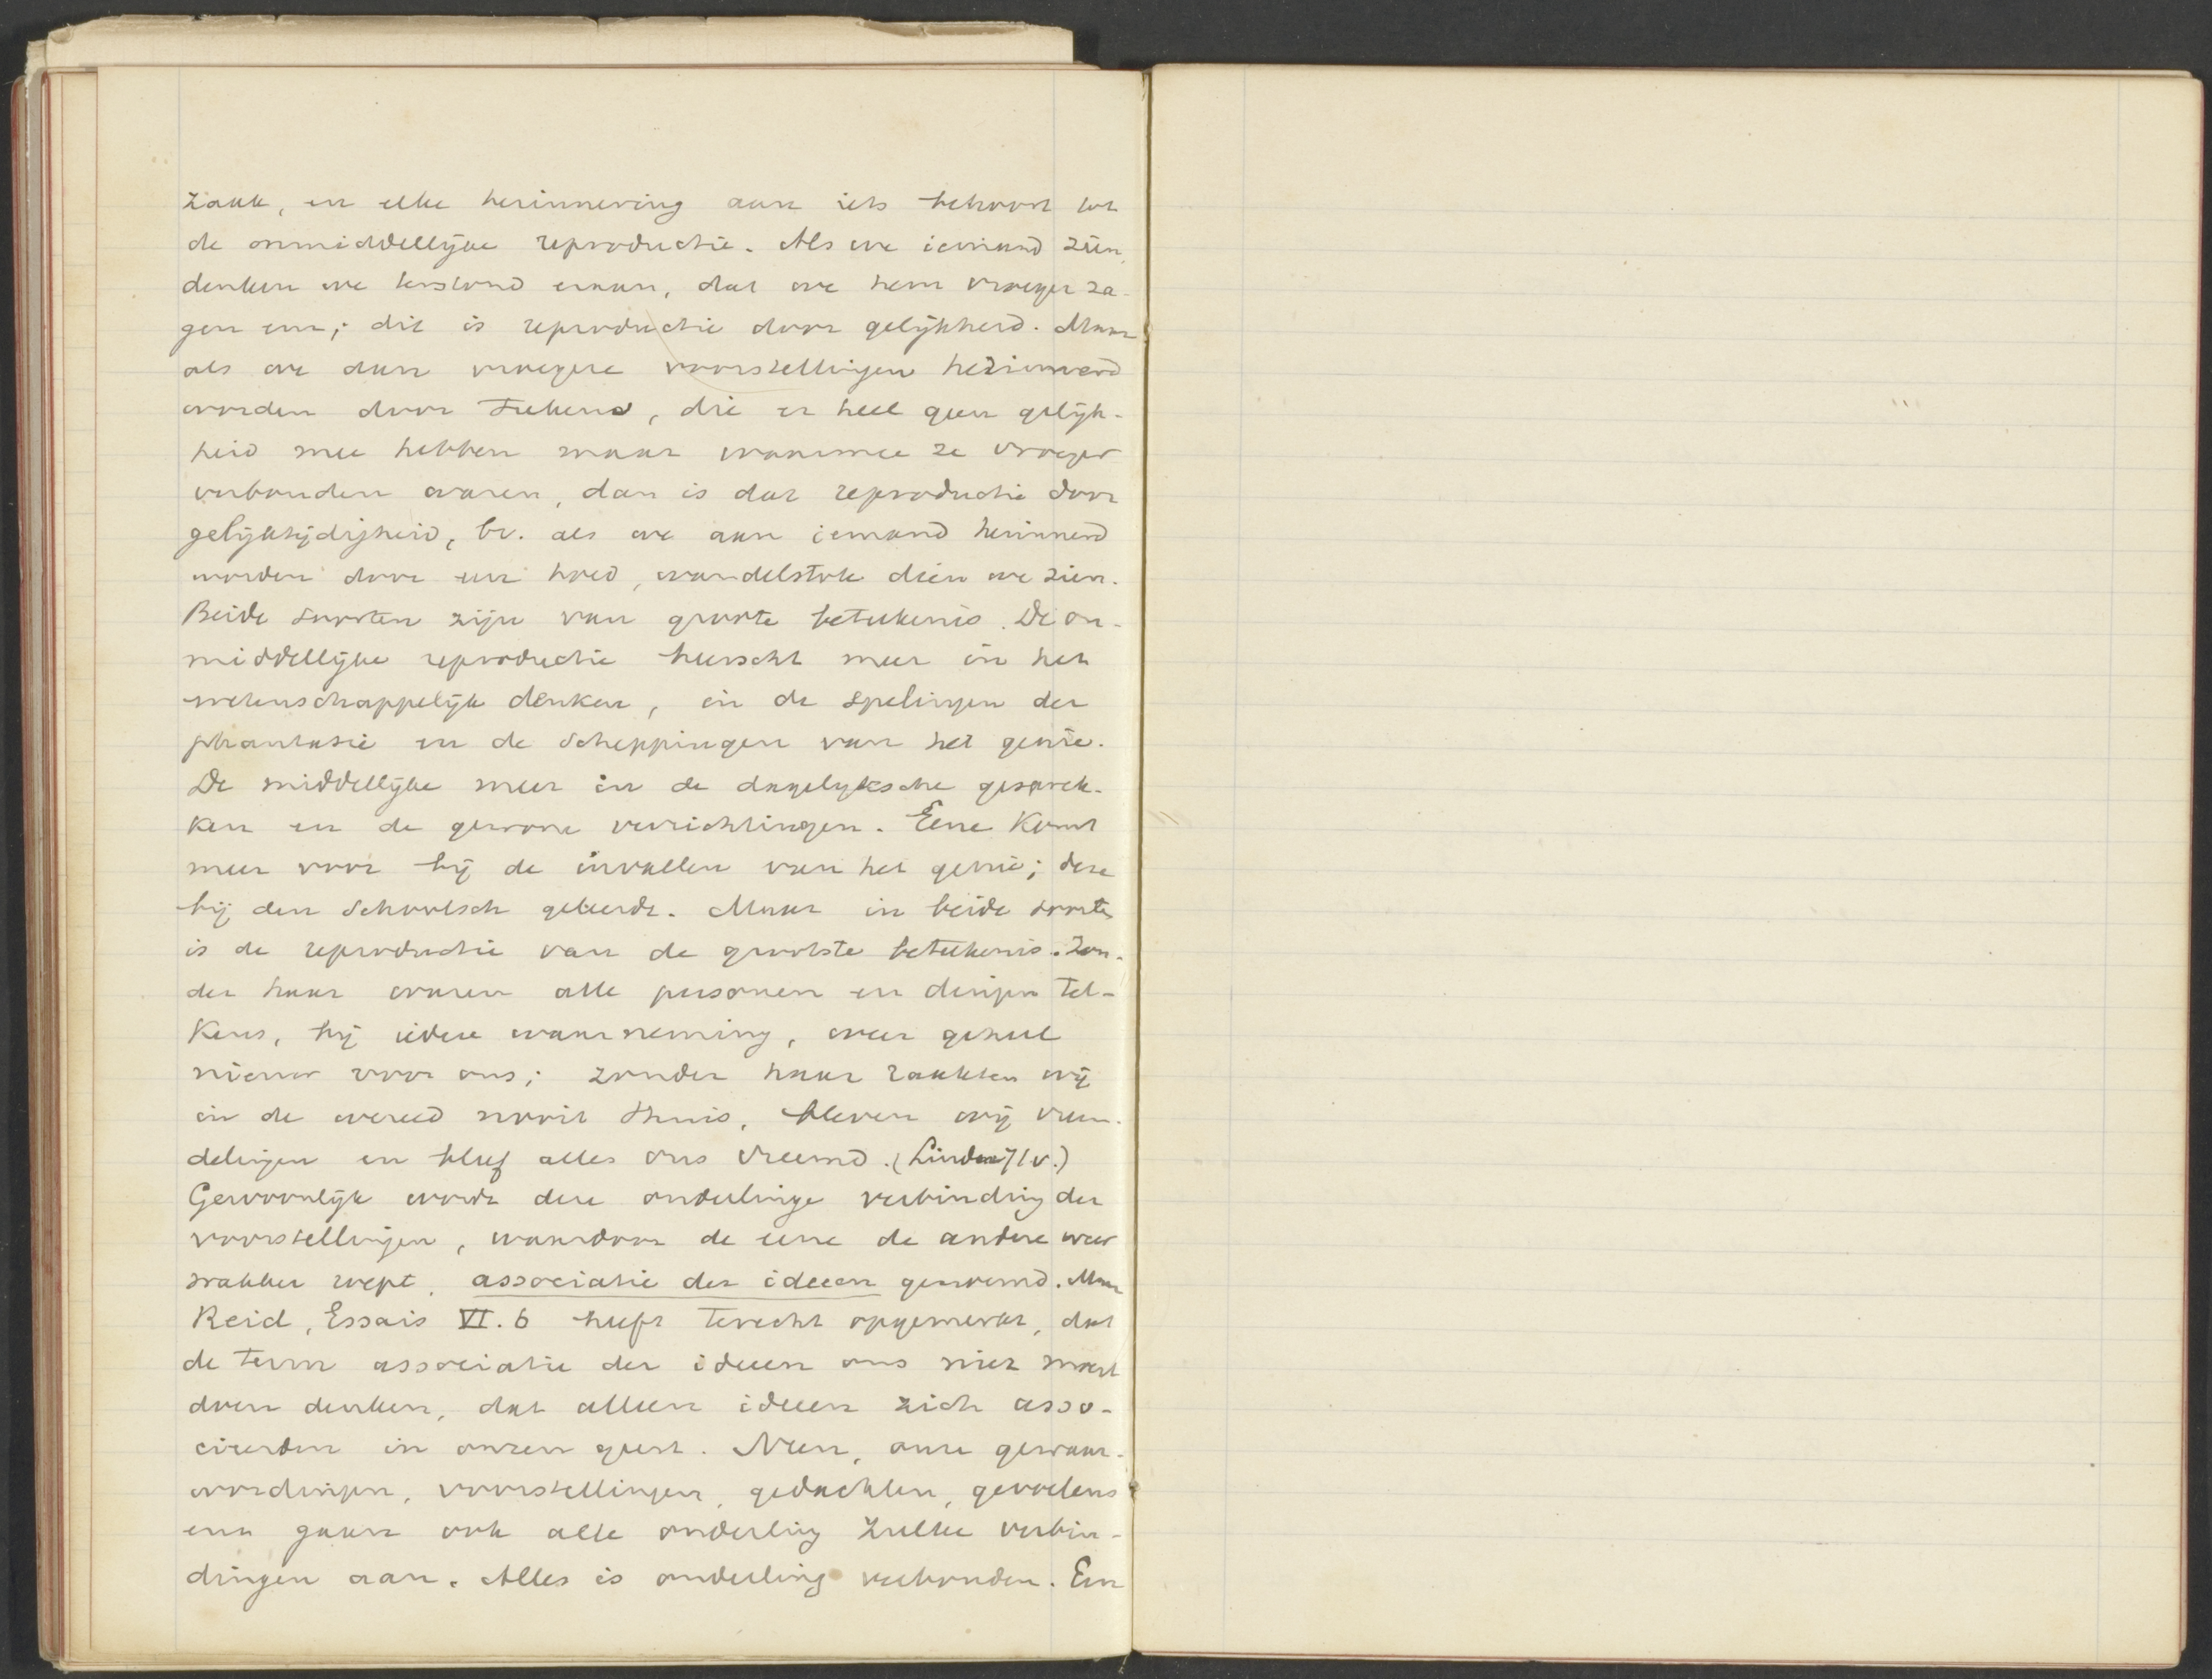 zaak, en elke herinnering aan iets behoort tot
de onmiddellijke reproductie. Als we iemand zien,
denken we terstond eraan, dat we hem vroeger za-
gen enz; dit is reproductie door gelijkheid. Maar
als we dan vroegere voorstellingen herinnerd
worden door teekens, die er heel geen gelijk-
heid mee hebben maar waarmee ze vroeger
verbonden waren, dan is dat reproductie door
gelijktijdigheid, bv. als we aan iemand herinnerd
worden door een hoed, wandelstok dien we zien.
Beide soorten zijn van groote beteekenis. De on-
middellijke reproductie heerscht meer in het
wetenschappelijk denken, in de spelingen der
phantasie en de scheppingen van het genie.
De middellijke meer in de dagelyksche gesprek-
ken en de gewone verrichtingen. Eene komt
meer voor bij de invallen van het genie; deze
bij den schoolsch geleerde. Maar in beide soorten
is de reproductie van de grootste beteekenis. Zon-
der haar waren alle personen en dingen tel-
kens, bij iedere waarneming, weer geheel
nieuw voor ons; zonder haar raakten wij
in de wereld nooit thuis, bleven wij vreem-
delingen en bleef alles ons vreemd. (Lindner 71v.)
Gewoonlijk wordt deze onderlinge verbinding der
voorstellingen, waardoor de eene de andere weer
wakker roept, associatie der ideeen genoemd. Maar
Reid, Essais VI. 6 heeft terecht opgemerkt, dat
de term associatie der ideeen ons niet moet
doen denken, dat alleen ideeen zich asso-
cieerden in onzen geest. Neen, onze gewaar-
wordingen, voorstellingen, gedachten, gevoelens
enz gaan ook alle onderling zulke verbin-
dingen aan. Alles is onderling verbonden. Een